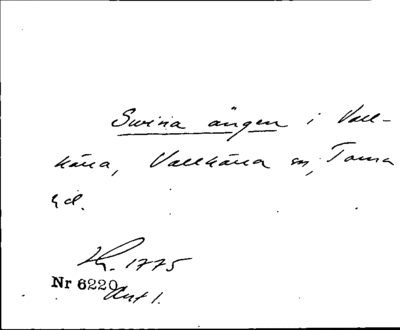 Swina ängen i Vall-
kära, Vallkära sn, Torna
hd.
1775
Nr 6220
Akt 1.